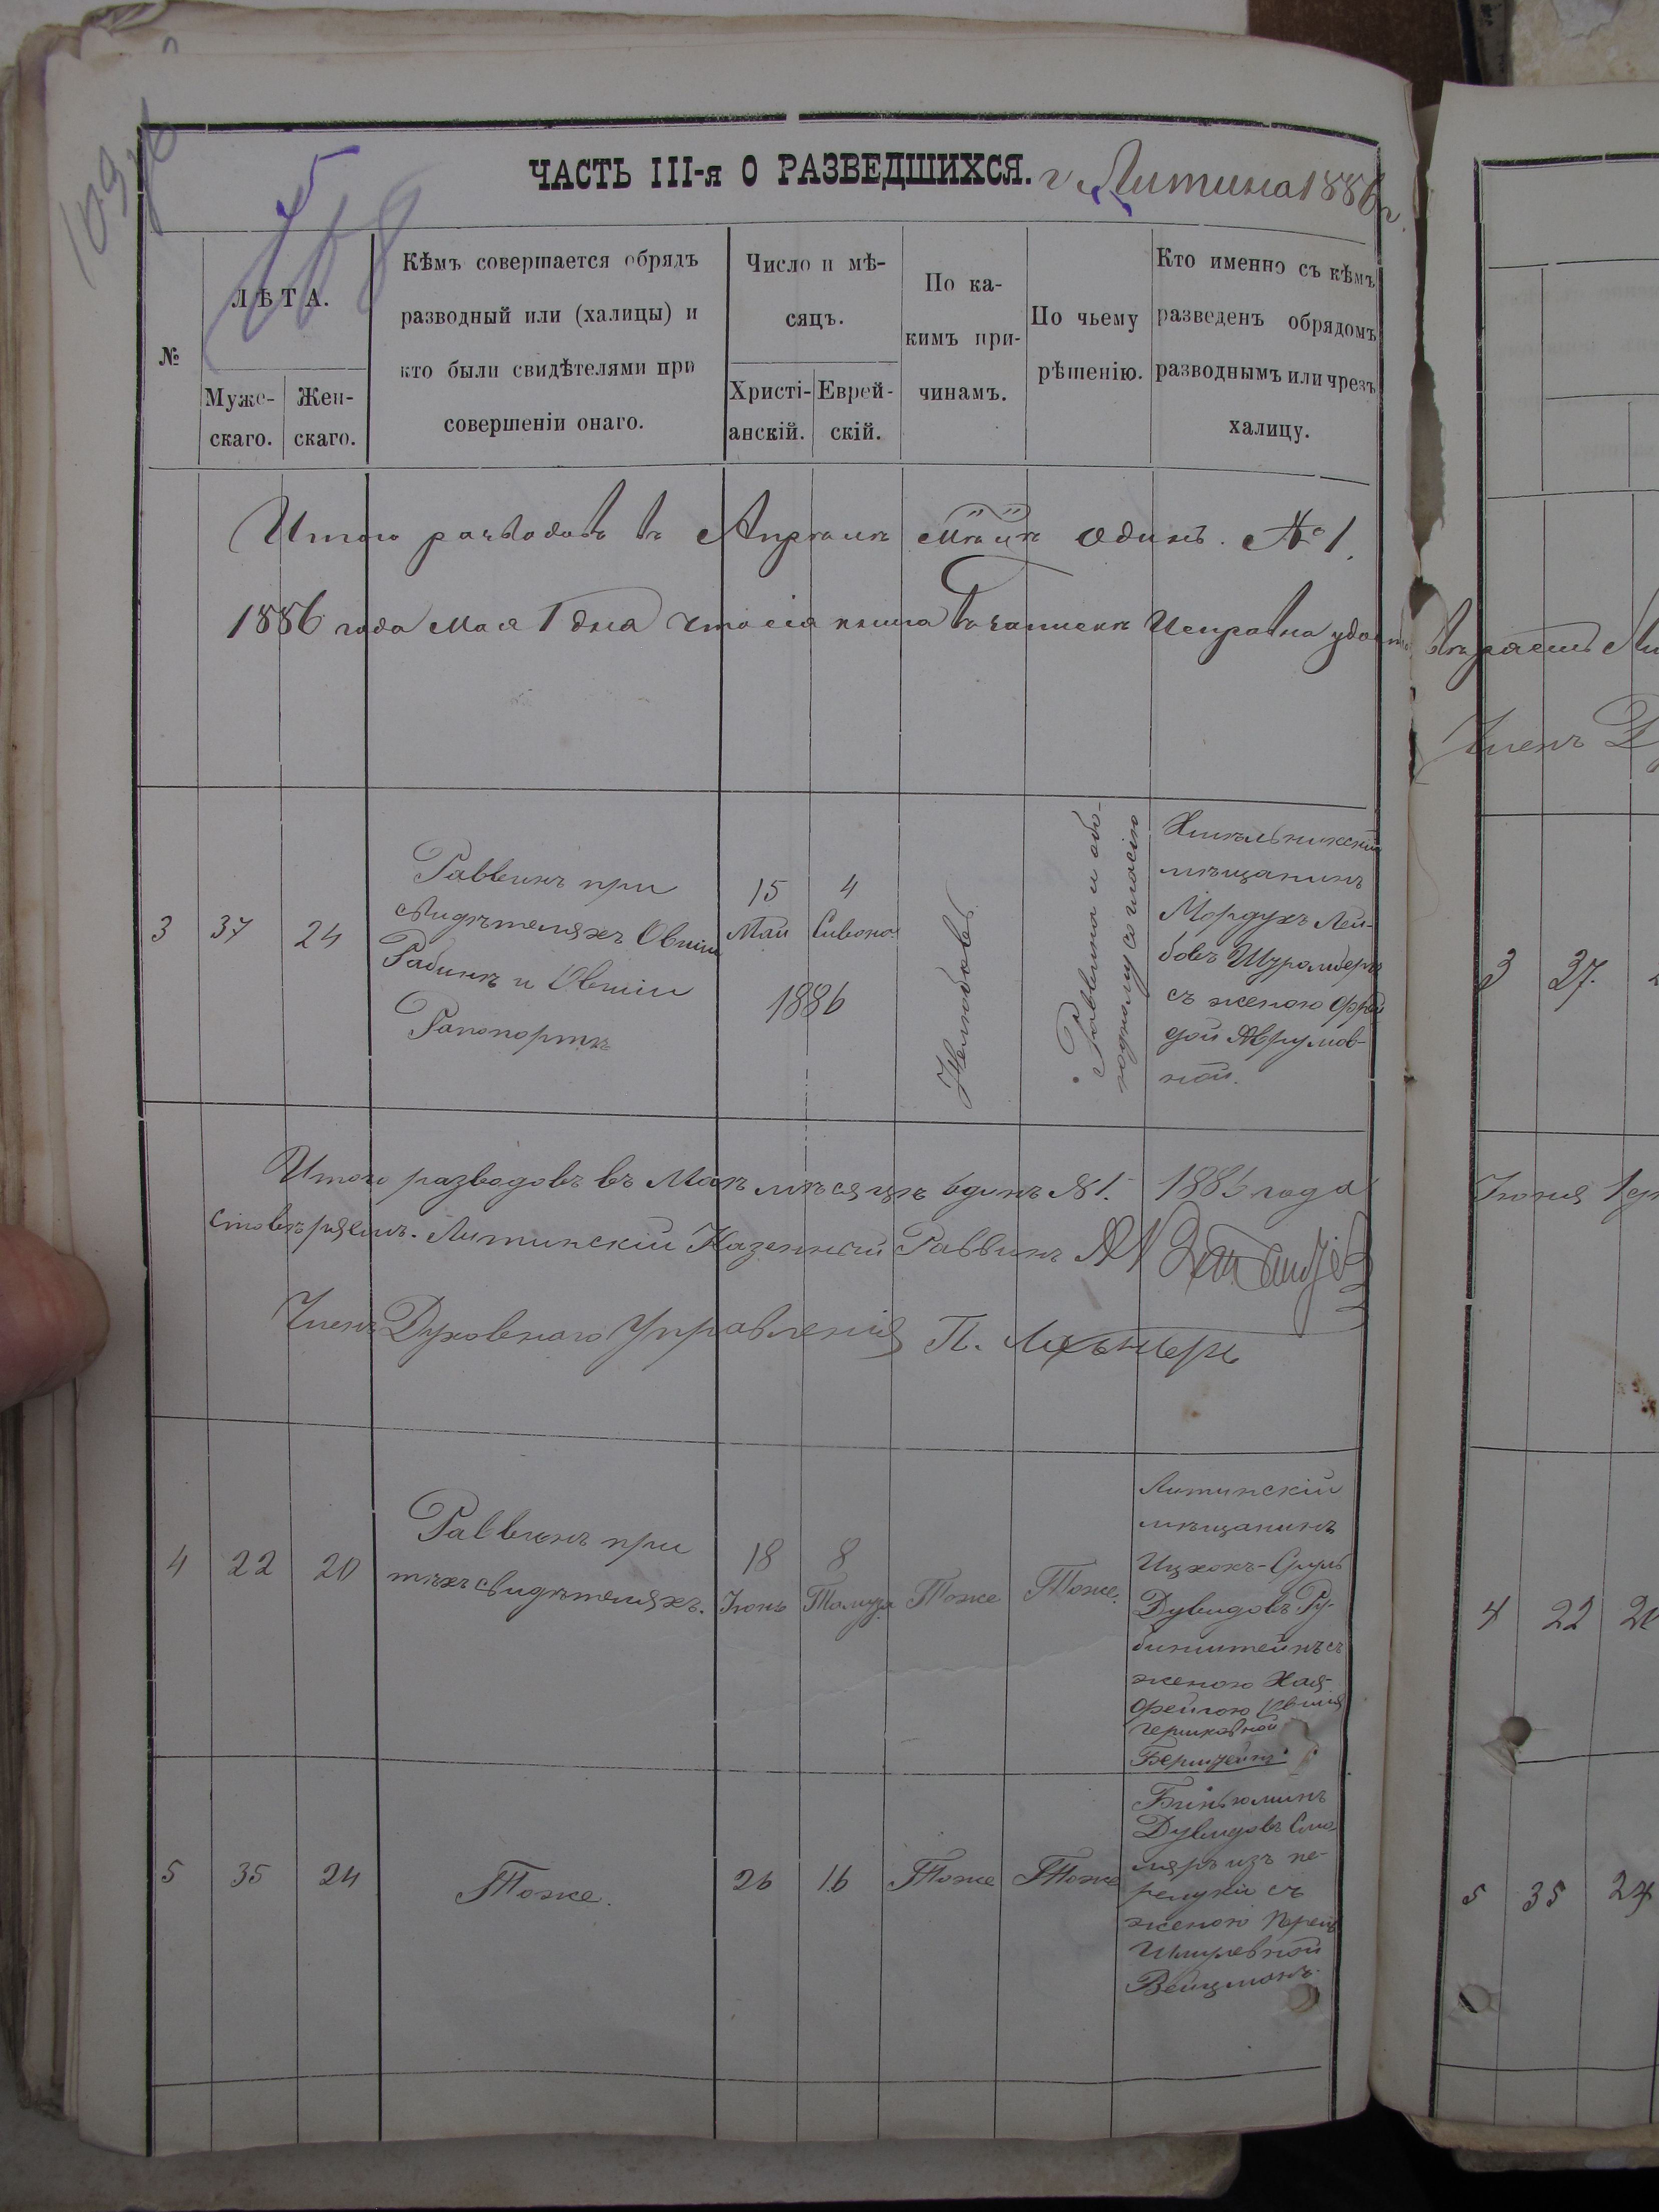 109
5
ЧАСТЬ III-я О РАЗВЕДШИХСЯ. г Литина 1886 г.
№
ЛѢТА.
Муже-
скаго.
Жен-
скаго.
Кѣмъ совершается обрядъ
разводный или (халицы) и
кто были свидѣтелями при
совершеніи онаго.
Число и мѣ-
сяцъ.
Христі-
анскій.
Еврей-
скій.
По ка-
кимъ при-
чинамъ.
По чьему
рѣшенію.
Кто именно съ кѣмъ
разведенъ обрядомъ
разводнымъ или чрезъ
халицу.
Итого разводовъ въ Апрѣлѣ одинъ. № 1.
1886 года Мая 1 дня что сія книга въ записки Исправна удосто
3
37
24
Раввинъ при
свидѣтеляхъ Овшіи
Рабинъ и Овшіи
Рапопортъ
15
Май
4
Сивона
1886
Нелюбовь
Раввина и обо-
юдному согласію
Хмѣльникскій
мѣщанинъ
Мордухъ Лей-
бовъ
съ женою Фрей
дой Аврумов-
ной.
Итого разводовъ въ Маѣ мѣсяцѣ одинъ № 1. 1886 года
стовѣряемъ. Литинскій Казенный Раввинъ
Членъ Духовнаго Управленія П.
4
22
20
Раввинъ при
тѣхъ свидѣтеляхъ.
18
Іюнь
8
Тамуза
Тоже
Тоже.
Литинскій
мѣщанинъ
Ицхокъ-Сруль
Дувидовъ Ру-
бинштейнъ съ
женою Хая-
Фейгою Овшія
Гершковной
5
35
24
Тоже.
26
16
Тоже
Тоже
Биньюминъ
Дувидовъ Сто-
ляръ изъ пе-
съ
женою
Шмулевной
Вейцманъ.
Членъ
3
37.
Іюня 1
4
22
20
5
35
24